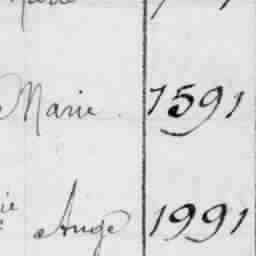 Marie 1591
Ange 1991